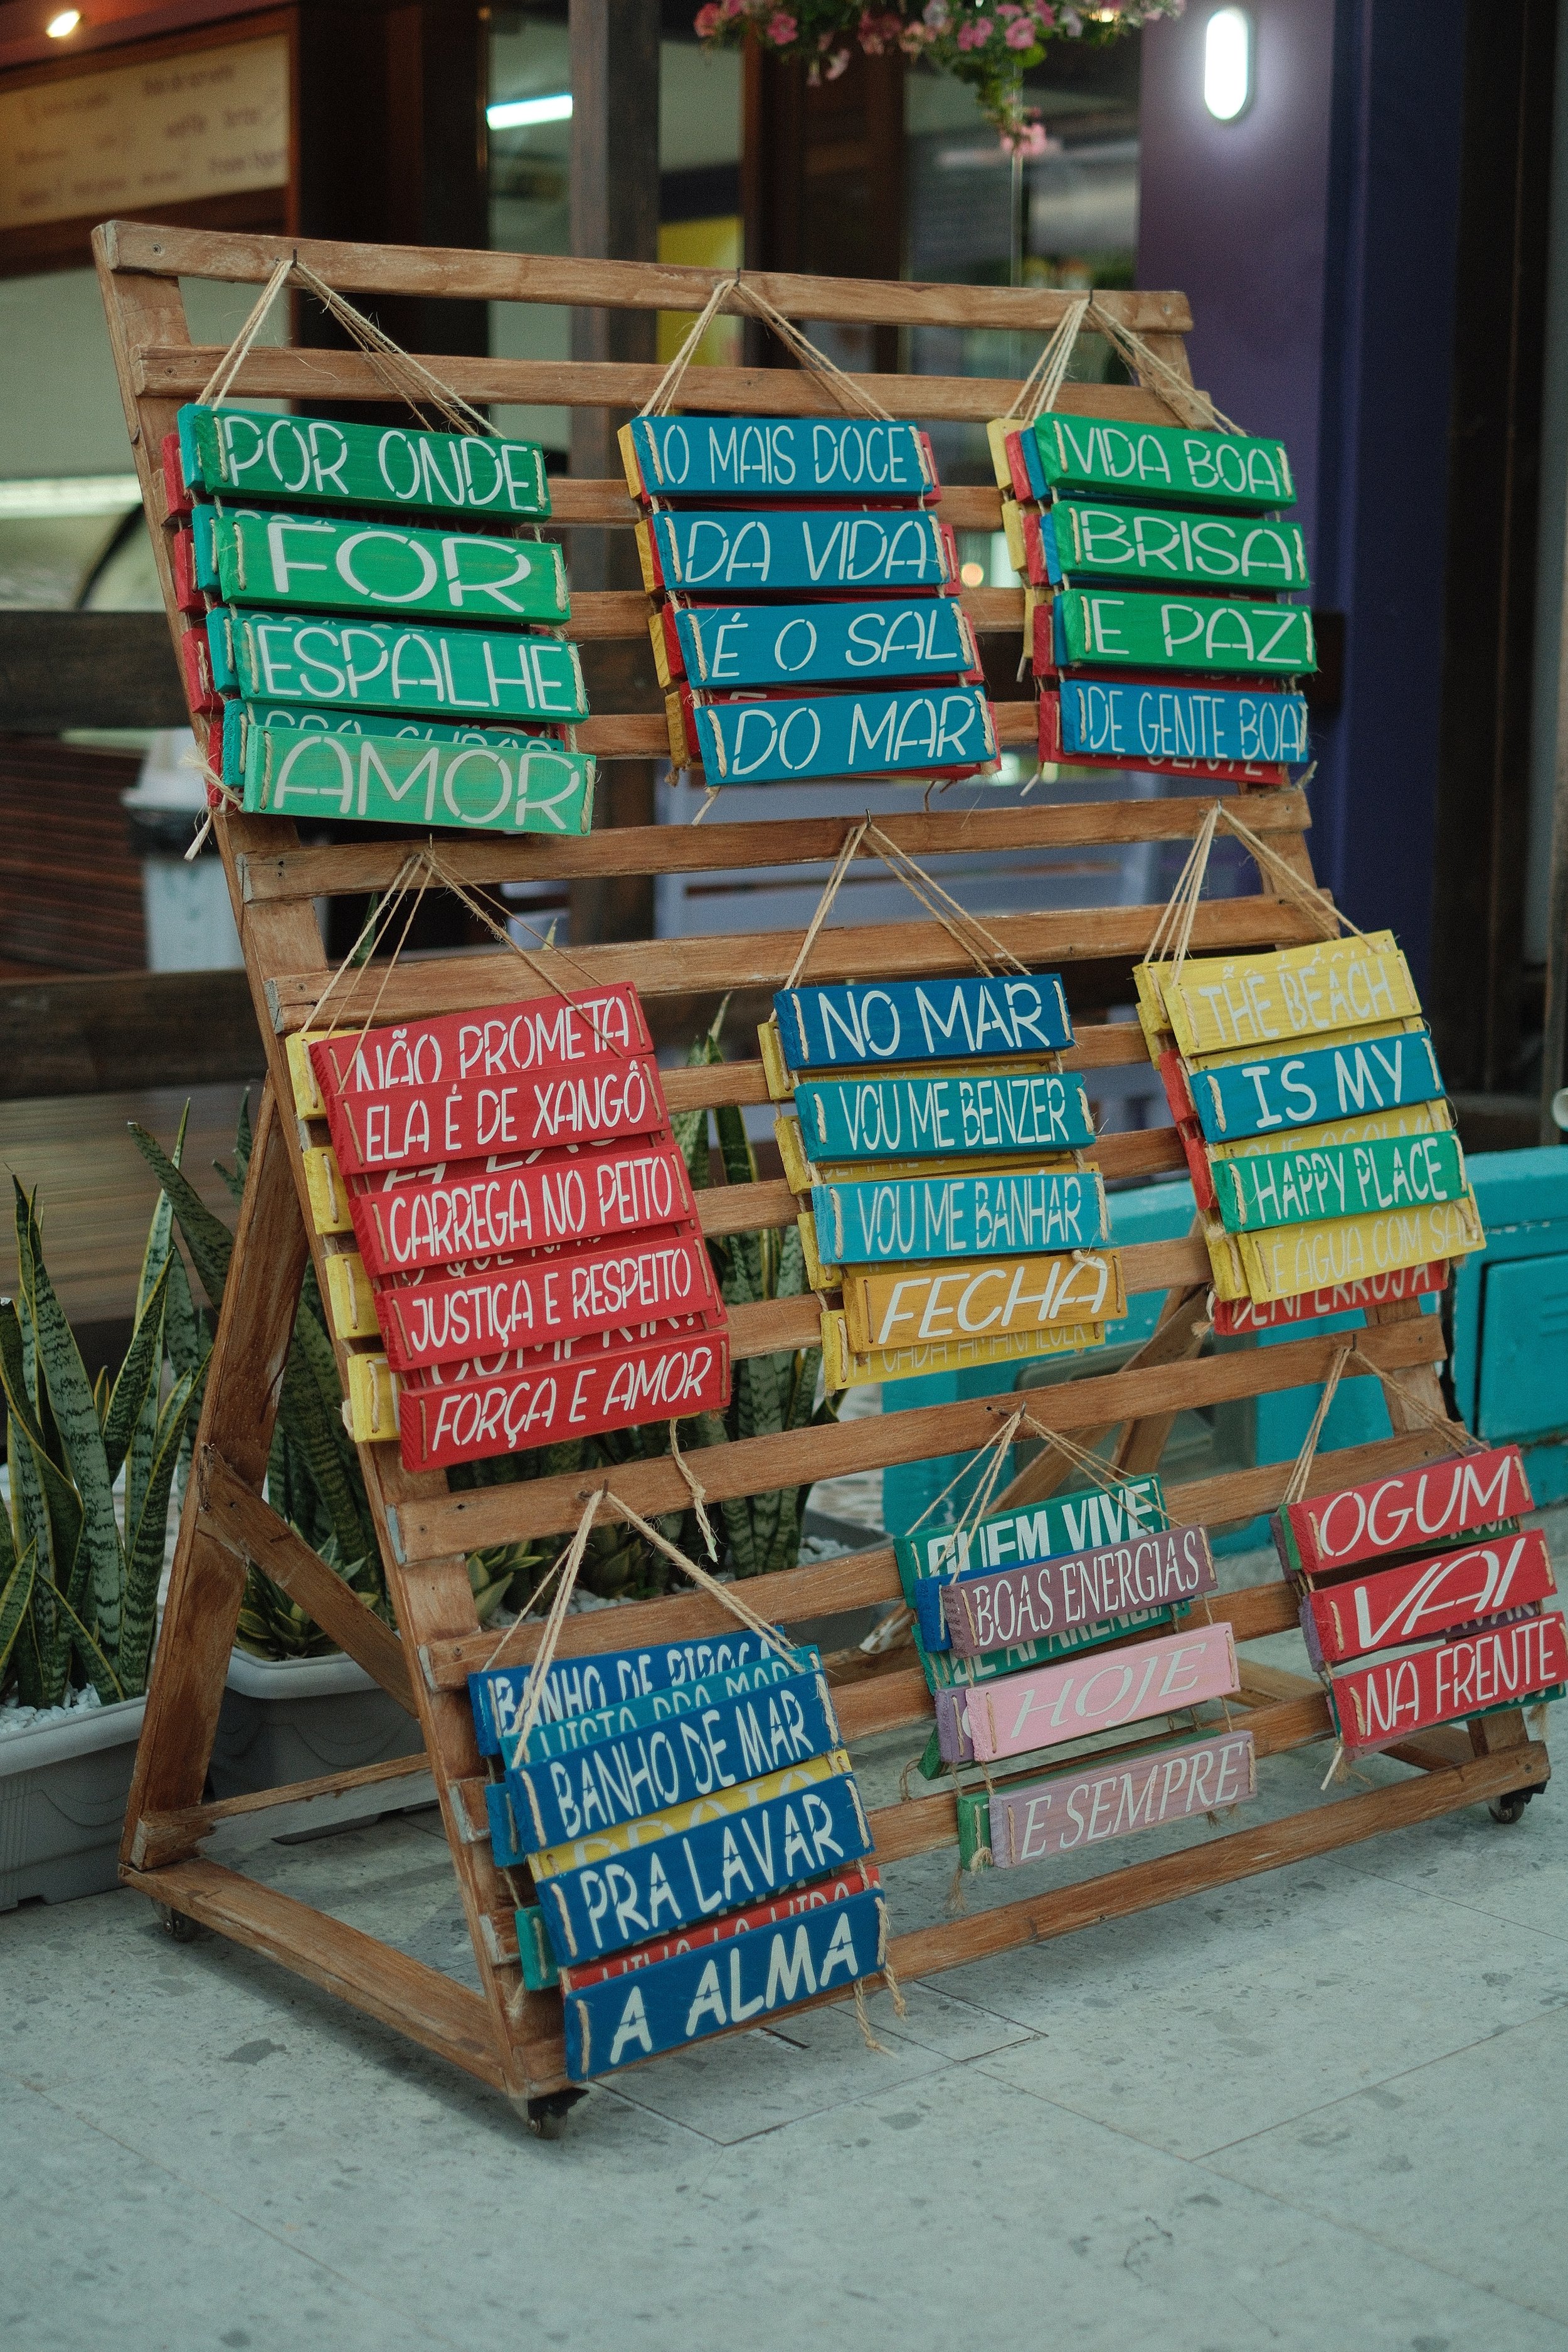 POR ONDE
FOR
ESPALHE
AMOR
O MAIS DOCE
DA VIDA
É O SAL
DO MAR
VIDA BOA
BRISA
E PAZ
DE GENTE BOA
NÃO PROMETA
ELA É DE XANGÔ
CARREGA NO PEITO
JUSTIÇA E RESPEITO
FORÇA E AMOR
NO MAR
VOU ME BENZER
VOU ME BANHAR
FECHA
A CADA AMANHECER
THE BEACH
IS MY
HAPPY PLACE
É ÁGUA COM SAL
DENFERRUJA
BANHO DE PIPOCA
VISTA PRO MAR
BANHO DE MAR
PRA LAVAR
A ALMA
QUEM VIVE
BOAS ENERGIAS
DE APARÊNCIA
HOJE
E SEMPRE
OGUM
VAI
NA FRENTE